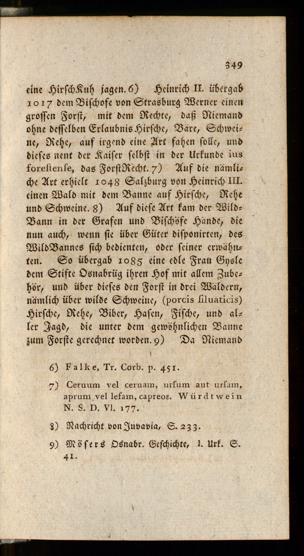 349
eine HirschKuh jagen. 6) Heinrich II. übergab
1017 dem Bischofe von Strasburg Werner einen
grossen Forst, mit dem Rechte, daß Niemand
ohne desselben Erlaubnis Hirsche, Bäre, Schwei-
ne, Rehe, auf irgend eine Art fahen solle, und
dieses nent der Kaiser selbst in der Urkunde ius
forestense, das ForstRecht. 7) Auf die nämli-
che Art erhielt 1048 Salzburg von Heinrich III.
einen Wald mit dem Banne auf Hirsche, Rehe
und Schweine. 8) Auf diese Art kam der Wild-
Bann in der Grafen und Bischöfe Hände, die
nun auch, wenn sie über Güter disponirten, des
WildBannes sich bedienten, oder seiner erwähn-
ten. So übergab 1085 eine edle Frau Gysle
dem Stifte Osnabrüg ihren Hof mit allem Zube-
hör, und über dieses den Forst in drei Wäldern,
nämlich über wilde Schweine, (porcis siluaticis)
Hirsche, Rehe, Biber, Hasen, Fische, und al-
ler Jagd, die unter dem gewöhnlichen Banne
zum Forste gerechnet worden. 9) Da Niemand
6) Falke, Tr. Corb. p. 451.
7) Ceruum vel ceruam, ursum aut ursam,
aprum vel lefam, capreos. Würdtwein
N. S. D. VI. 177.
8) Nachricht von Juvavia, S. 233.
9) Mösers Osnabr. Geschichte, I. Urk. S.
41.